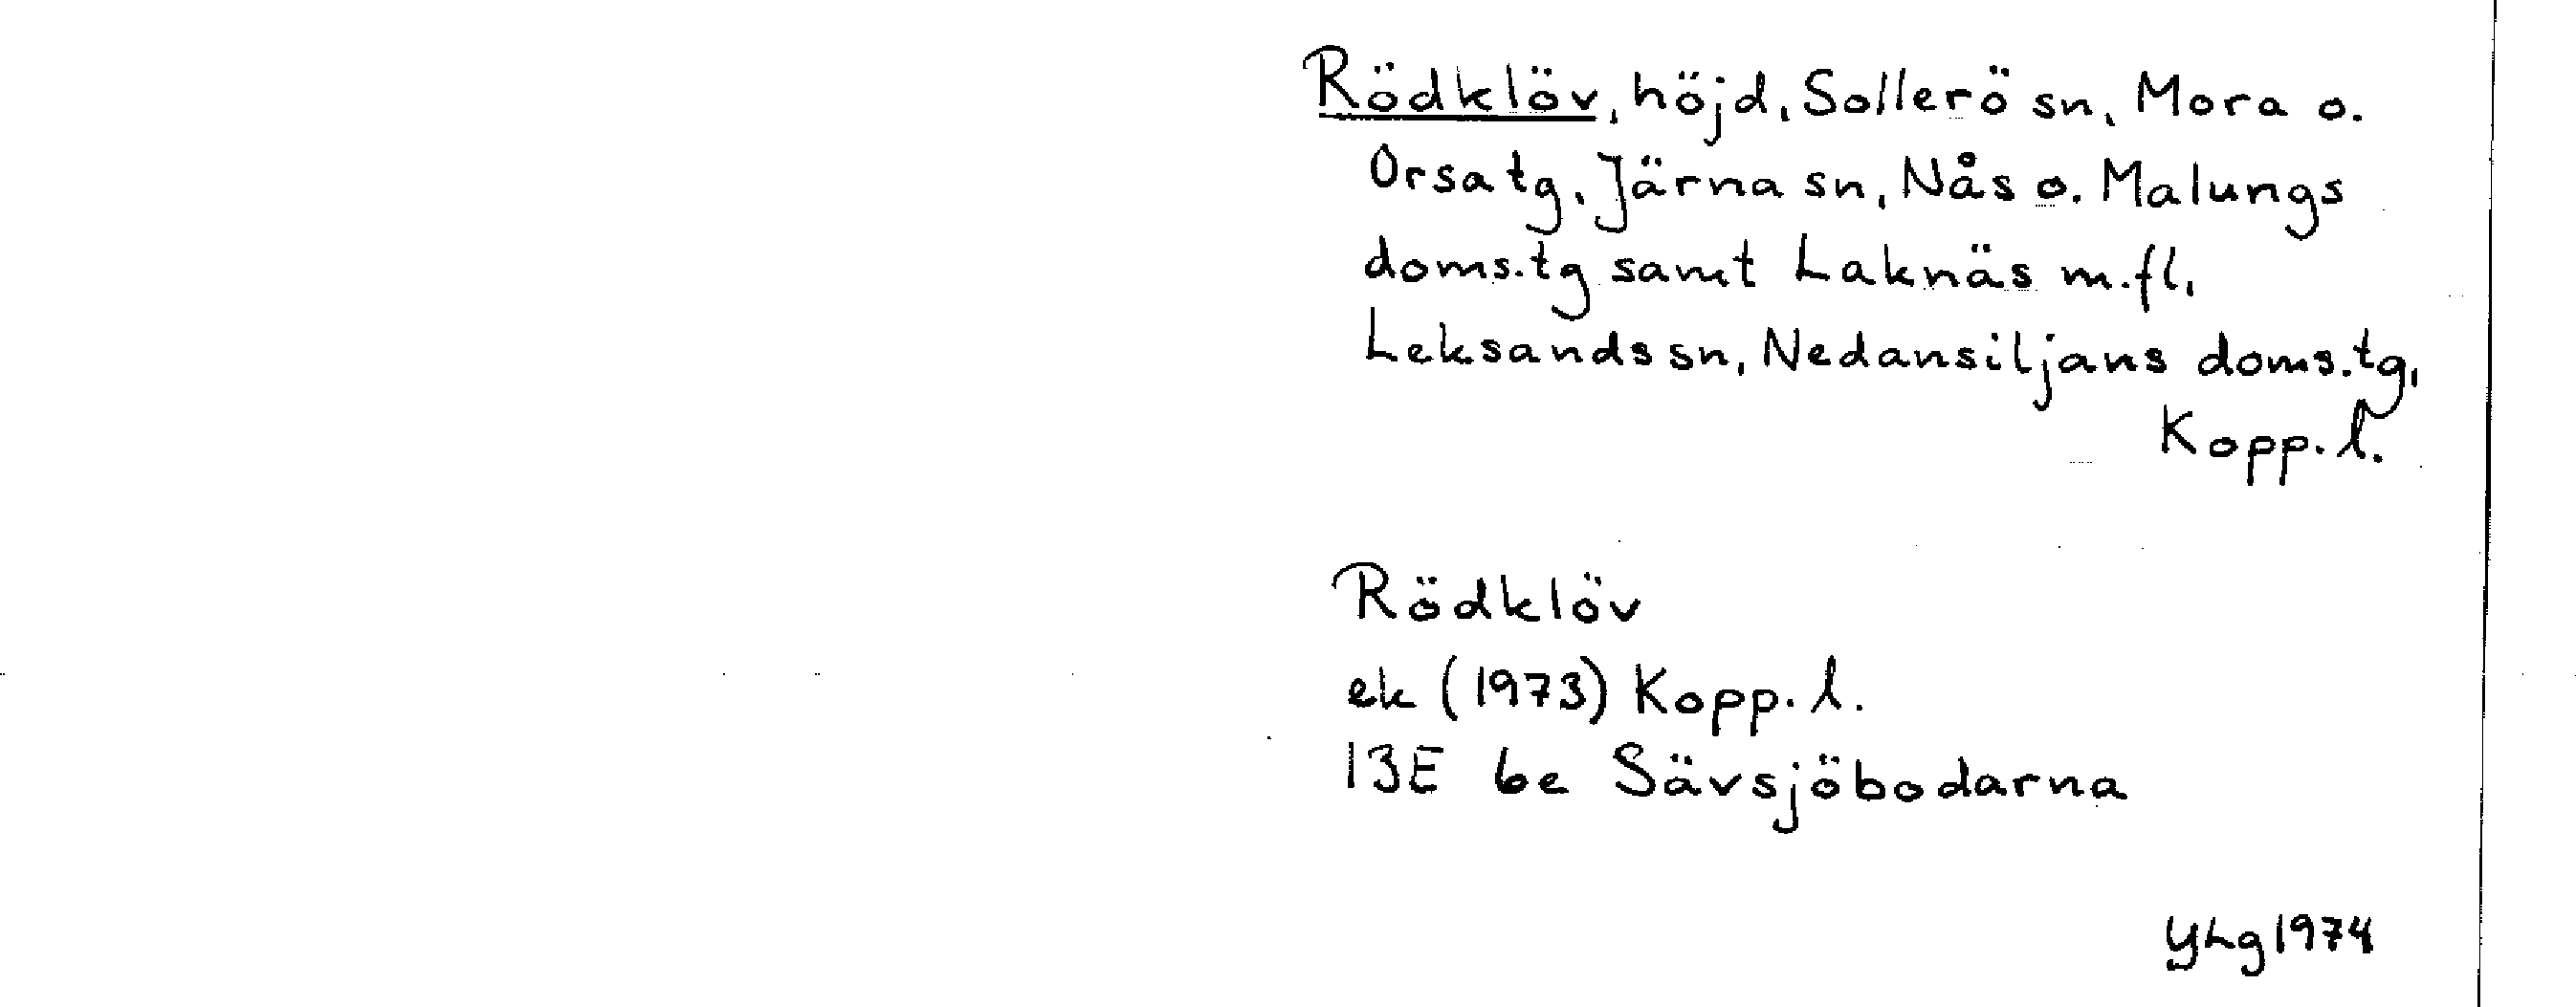 Rödklöv, höjd, Sollerö sn, Mora o.
Orsa tg, Järna sn, Nås o. Malungs
doms.tg samt Laknäs m.fl,
Leksands sn, Nedansiljans doms.tg,
Kopp. l.
Rödklöv
ek (1973) Kopp. l.
13E 6e Sävsjöbodarna
YLg 1974